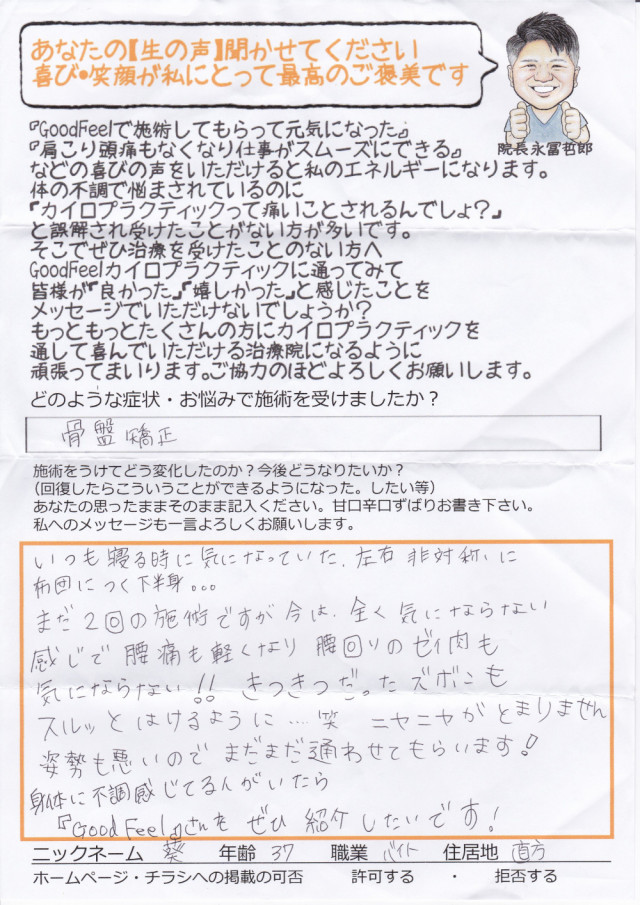 あなたの【生の声】聞かせてください
喜び・笑顔が私にとって最高のご褒美です
院長永冨哲郎
『GoodFeelで施術してもらって元気になった』
『肩こり頭痛もなくなり仕事がスムーズにできる』
などの喜びの声をいただけると私のエネルギーになります。
体の不調で悩まされているのに
「カイロプラクティックって痛いことされるんでしょ？」
と誤解され受けたことがない方が多いです。
そこでぜひ治療を受けたことのない方へ
GoodFeelカイロプラクティックに通ってみて
皆様が「良かった」「嬉しかった」と感じたことを
メッセージでいただけないでしょうか？
もっともっとたくさんの方にカイロプラクティックを
通して喜んでいただける治療院になるように
頑張ってまいります。ご協力のほどよろしくお願いします。
どのような症状・お悩みで施術を受けましたか？
骨盤矯正
施術をうけてどう変化したのか？今後どうなりたいか？
（回復したらこういうことができるようになった。したい等）
あなたの思ったままそのまま記入ください。甘口辛口ずばりお書き下さい。
私へのメッセージも一言よろしくお願いします。
いつも寝る時に気になっていた、左右非対称に
布団につく下半身...
まだ2回の施術ですが今は、全く気にならない
感じで腰痛も軽くなり腰回りのゼイ肉も
気にならない!! きつきつだったズボンも
スルッとはけるように....笑 ニヤニヤがとまりません
姿勢も悪いのでまだまだ通わせてもらいます!
身体に不調感じてる人がいたら
『Good Feel』さんをぜひ紹介したいです!
ニックネーム 葵 年齢 37 職業 バイト 住居地 直方
ホームページ・チラシへの掲載の可否 許可する ・ 拒否する